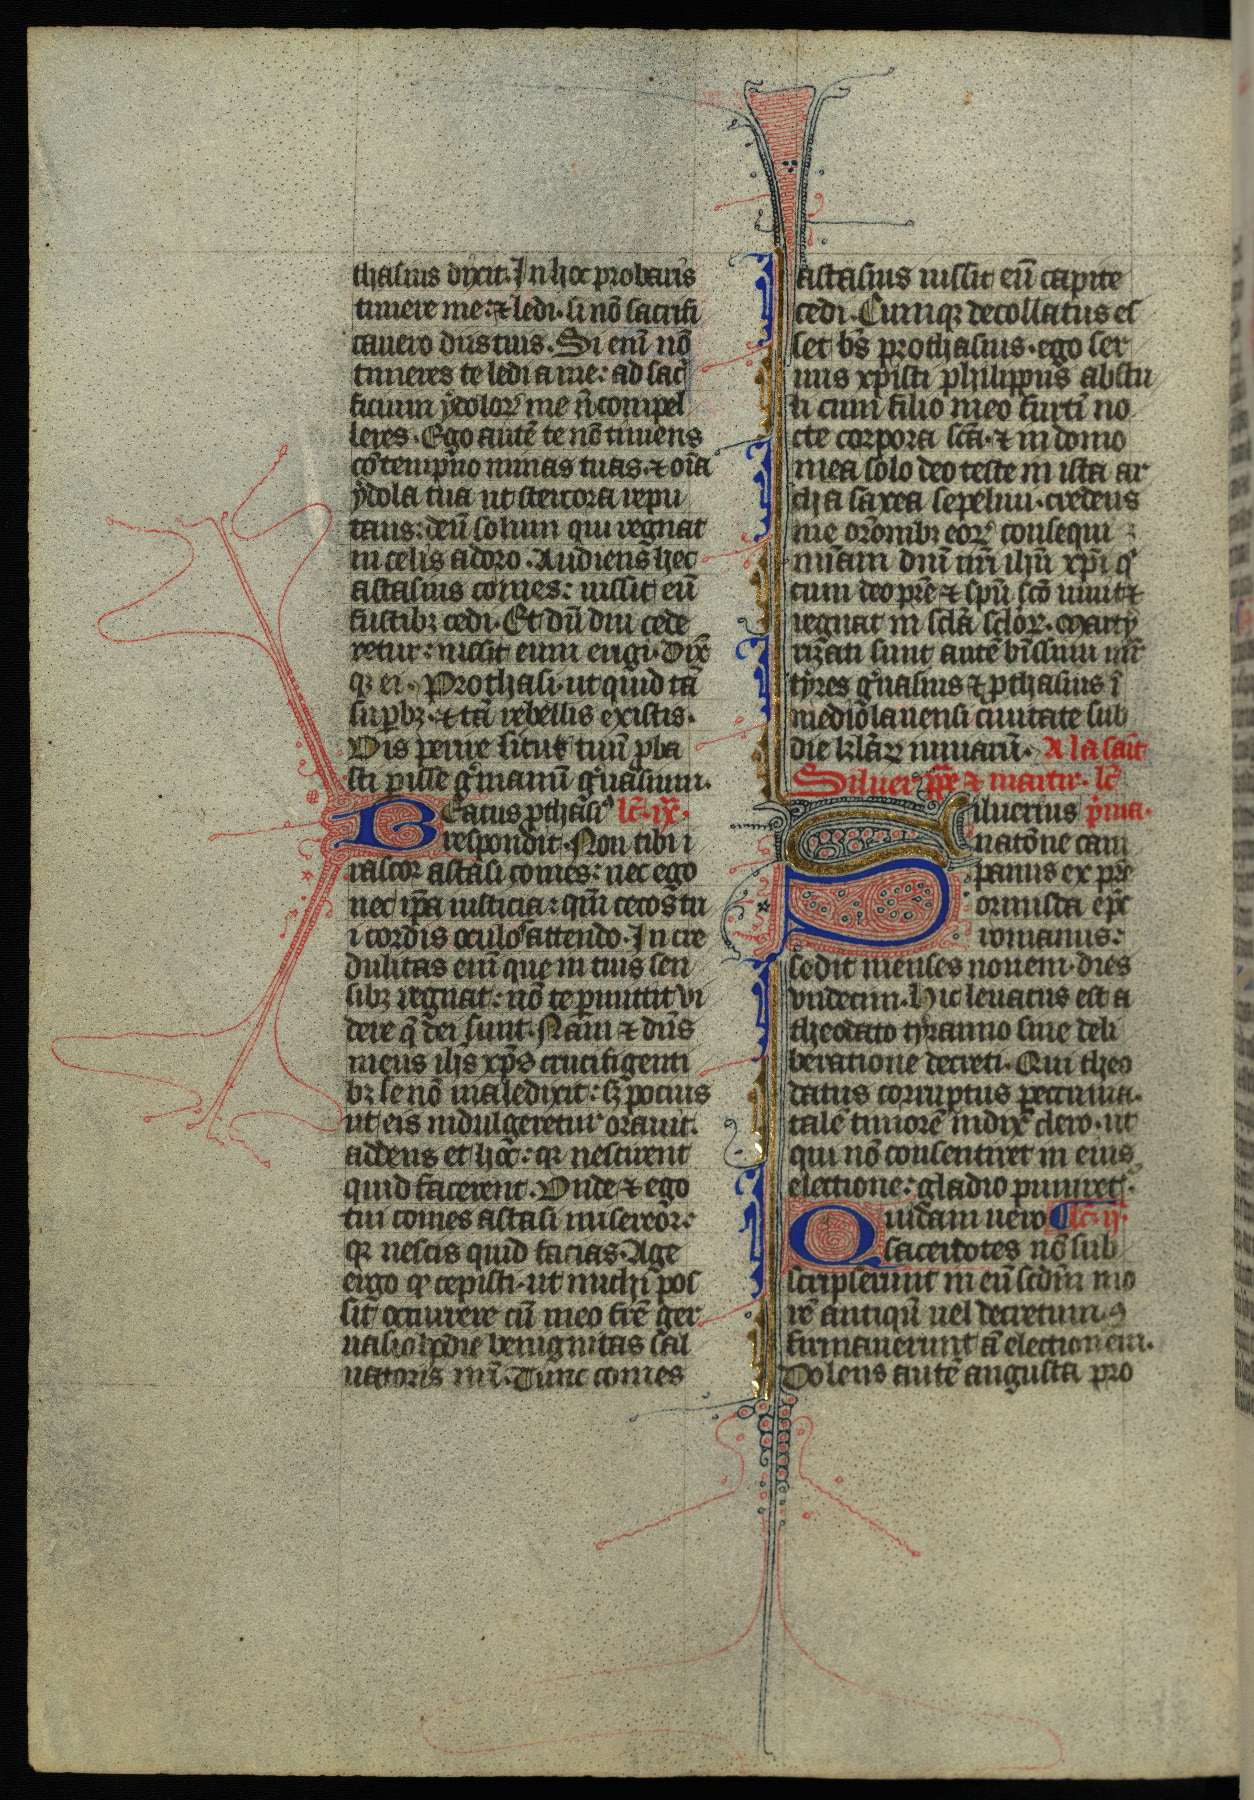 thasius dixit. In hoc probaris
timere me: & ledi. si nō sacrifi
cauero diis tuis. Si enī nō
timeres te ledi a me: ad sac̄
ficium ydolor̄ me n̄ compel
leres. Ego autē te nō timens
cōtempno minas tuas. & oīa
ydola tua ut stercora repu
tans: deū solum qui regnat
in celis adoro. Audiens hec
astasius comes: iussit eū
fustibꝫ cedi. Et dū diu cede
retur: iussit eum erigi. Dixͭ
qꝫ ei. Prothasi. ut quid tā
suꝑbꝫ. & tā rebellis existis.
Vis perire sicut tuū ꝓba
sti ꝑisse gͤmanū gͤuasium.
Beatus ꝓthasiꝰ lc̄. ix.
respondit. Non tibi i
rascor astasi comes: nec ego
nec ip̄a iusticia: qm̄ cecos tu
i cordis oculos attendo. In cre
dulitas enī que in tuis sen
sibꝫ regnat: nō te ꝑmittit vi
dere q̄ dei sunt. Nam & dn̄s
meus ih̄s xp̄s crucifigenti
bꝫ se nō maledixit: sꝫ pocius
ut eis indulgeretur orauit.
addens et hoc: qꝛ nescirent
quid facerent. Vnde & ego
tui comes astasi misereor:
qꝛ nescis quid facias. Age
ergo qͦ cepisti. ut michi pos
sit occurrere cū meo frē ger
uasio hodie benignitas sal
uatoris nr̄i. Tunc comes
astasius iussit eū capite
cedi. Cumqꝫ decollatus es
set bs̄ prothasius. ego ser
uus xp̄isti philippus abstu
li cum filio meo furtī no
cte corpora sc̄a. & in domo
mea solo deo teste in ista ar
cha saxea sepeliui. credens
me or̄onibꝫ eoꝝ consequi
mīam dn̄i nr̄i ih̄u xp̄i qͥ
cum deo pr̄e & sp̄u sc̄o uiuit &
regnat in sc̄lā sc̄lor̄. Marty
rizati sunt autē bīssimi mr̄
tyres gͤuasius & ꝓthasius ī
mediolanensi ciuitate sub
die kl̄aꝝ iunuarū. A la saint
Siluer ꝑpe & martir. lc̄
Siluerius pͥma.
natōne cam
panus ex pr̄e
ormista ep̄c
romanus:
sedit menses nouem. dies
vndecim. Hic leuatus est a
theodato tyranno sine deli
beratione decreti. Qui theo
datus corruptus pecunia.
talē timorē indixͭ clero. ut
qui nō consentiret in eius
electione: gladio puniretͬ.
Quidam uero lc̄. ij.
sacerdotes nō sub
scripserunt in eū scd̄m mo
rē antiqū uel decretum. 9
firmauerunt ā electionem.
Dolens autē angusta pro